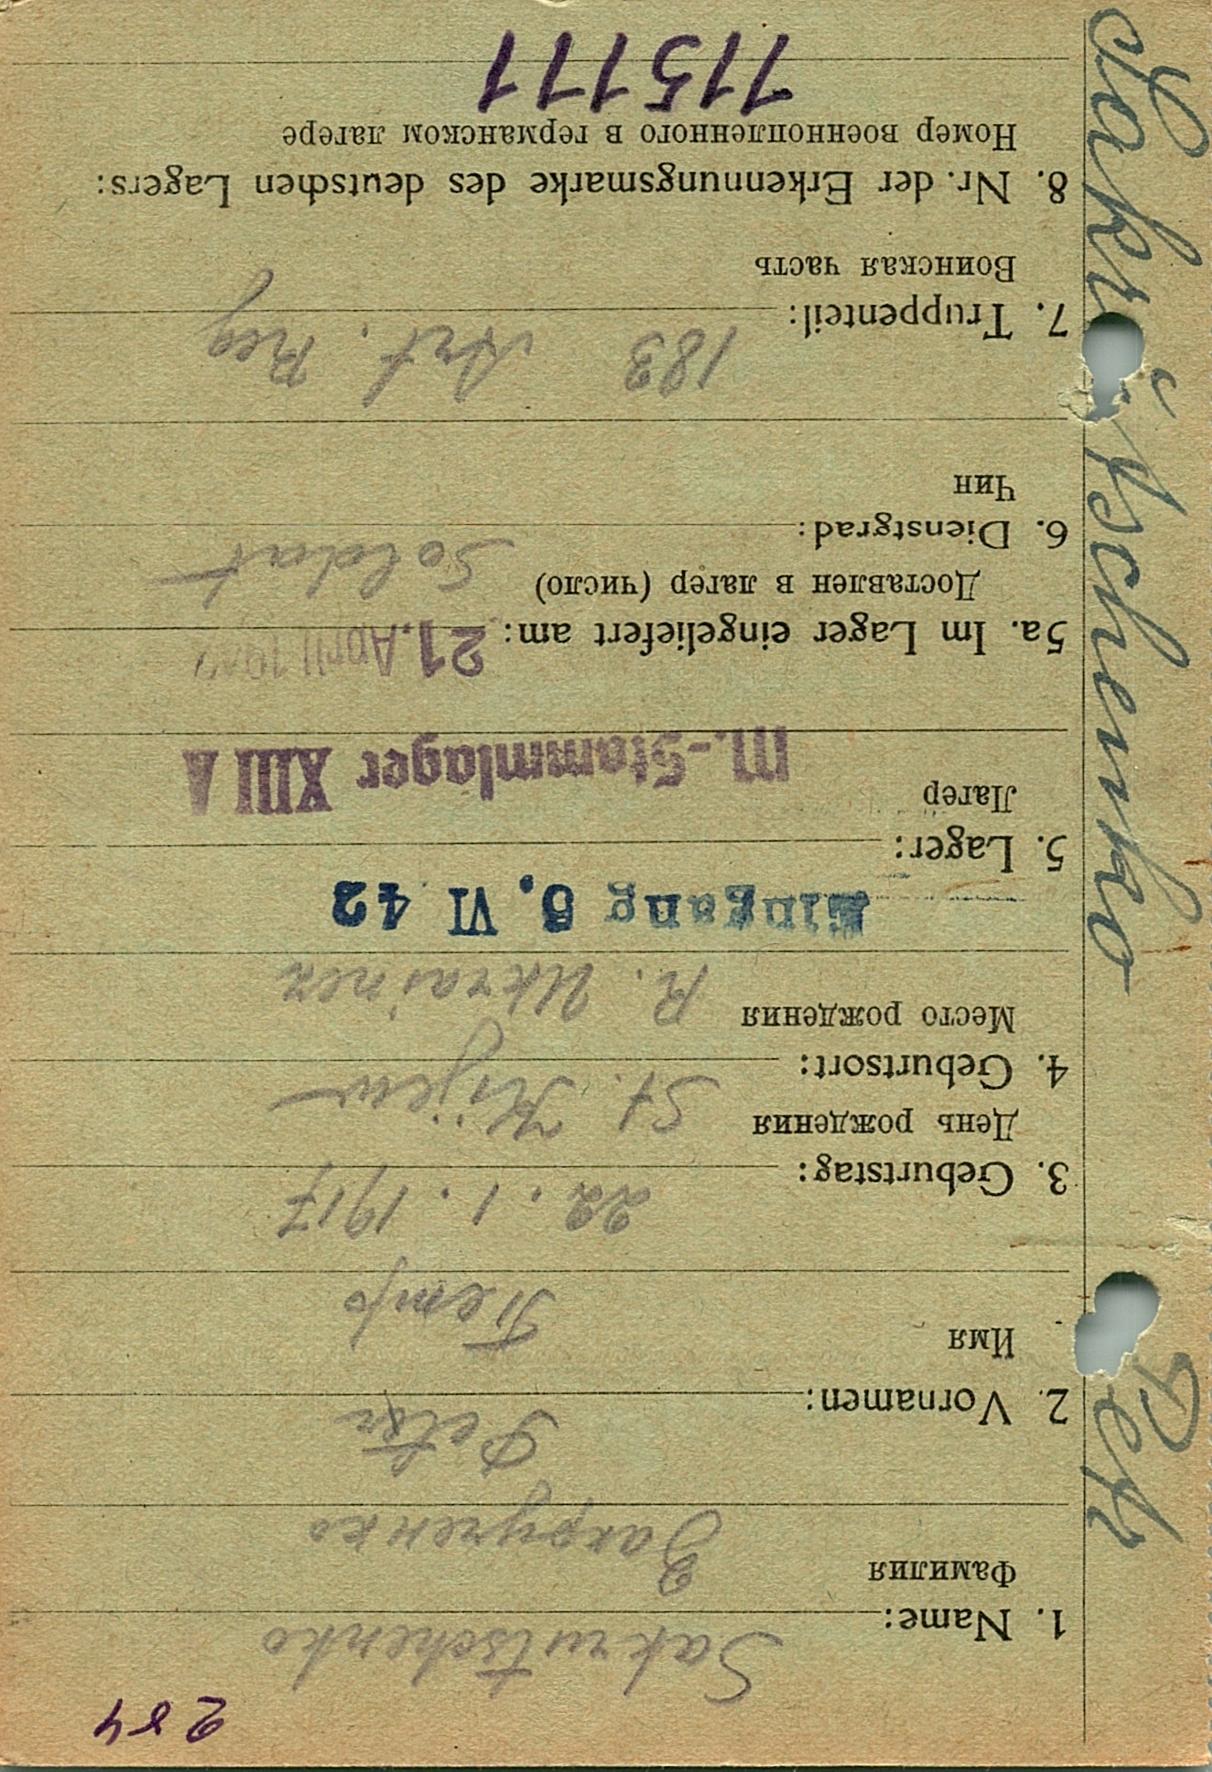 284
1. Name: Sakrutschenko
Фамилия Закрученко
2. Vornamen: Peter
Имя Петр
3. Geburtstag: 22.1.1917
День рождения
4. Geburtsort: St. Kijew
Место рождения R. Ukrainer
Eingang 6. VI 42
5. Lager:
Лагер
M.-Stammlager XIII A
5a. Im Lager eingeliefert am: 21. April 19
Доставлен в лагер (число)
6. Dienstgrad: Soldat
Чин
7. Truppenteil: 183 Art. Reg
Воинская часть
8. Nr. der Erkennungsmarke des deutschen Lagers:
Номер военнопленного в германском лагере
715111